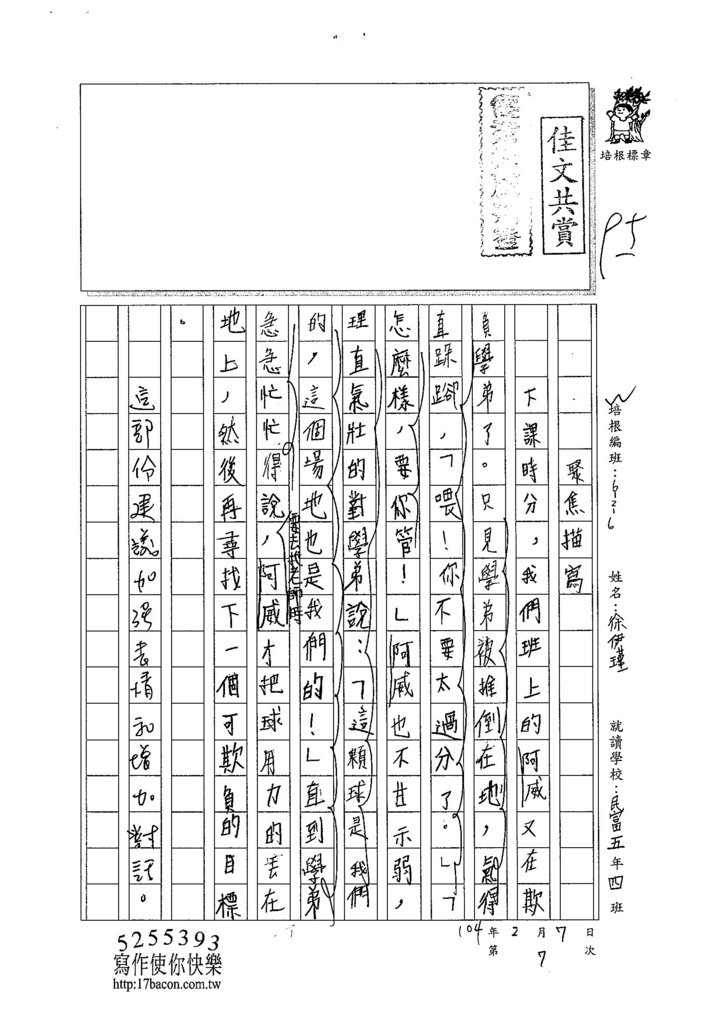 培根標章
佳文共賞
95
培根編班：W626
姓名：徐伊瑾
就讀學校：民富五年四班
104年2月7日
第7次
聚焦描寫
下課時分，我們班上的阿威又在欺
負學弟了。只見學弟被推倒在地，氣得
直跺腳，「喂！你不要太過分了。」「
怎麼樣，要你管！」阿威也不甘示弱，
理直氣壯的對學弟說：「這顆球是我們
的，這個場地也是我們的！」直到學弟
急急忙忙得說，要去找老師時阿威才把球用力的丟在
地上，然後再尋找下一個可欺負的目標
。
這部份建議加強表情和增加對話。
5255393
寫作使你快樂
http:17bacon.com.tw